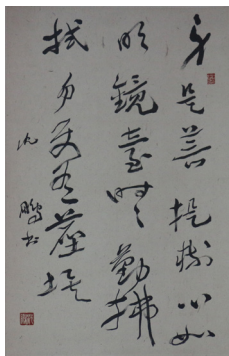 身是菩提樹心如
明鏡臺時〻勤拂
拭勿使惹塵埃
沈鵬书